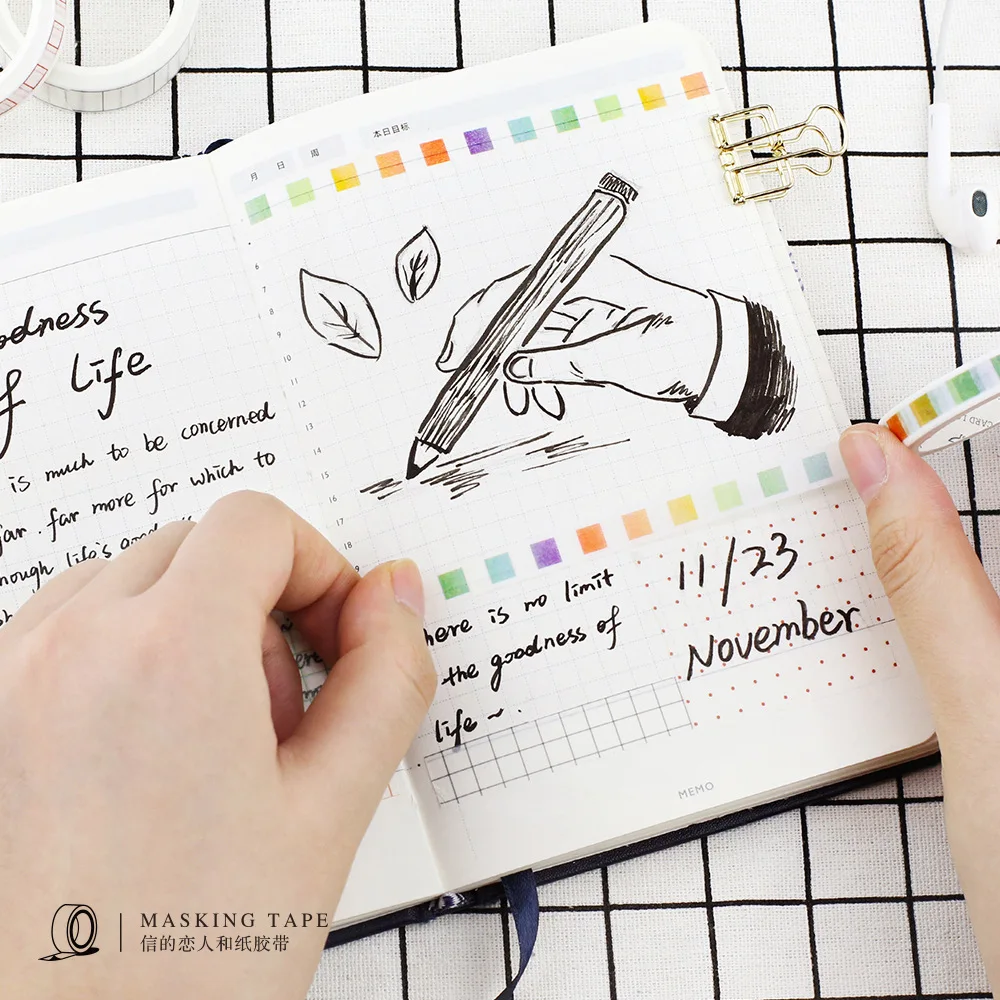 月 日 周 本日目标
6
7
8
9
10
11
12
13
14
15
16
17
18
Life
is much to be concerned
far. far more for which to
life's
11/23
November
here is no limit
the goodness of
life ~.
MEMO
MASKING TAPE
信的恋人和纸胶带